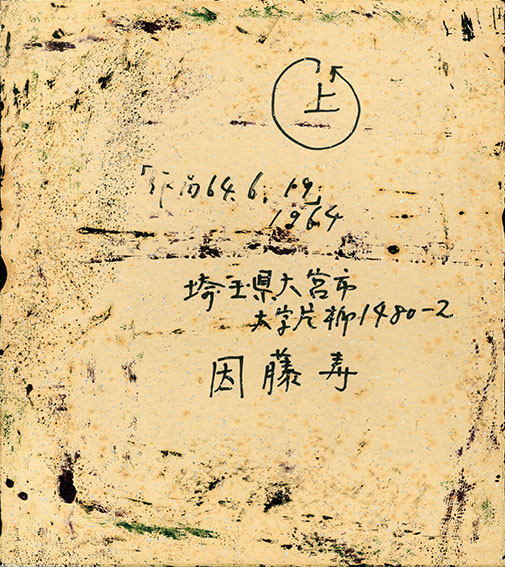 上
「作品64.6.19」
1964
埼玉県大宮市
大字片柳1480-2
因藤寿